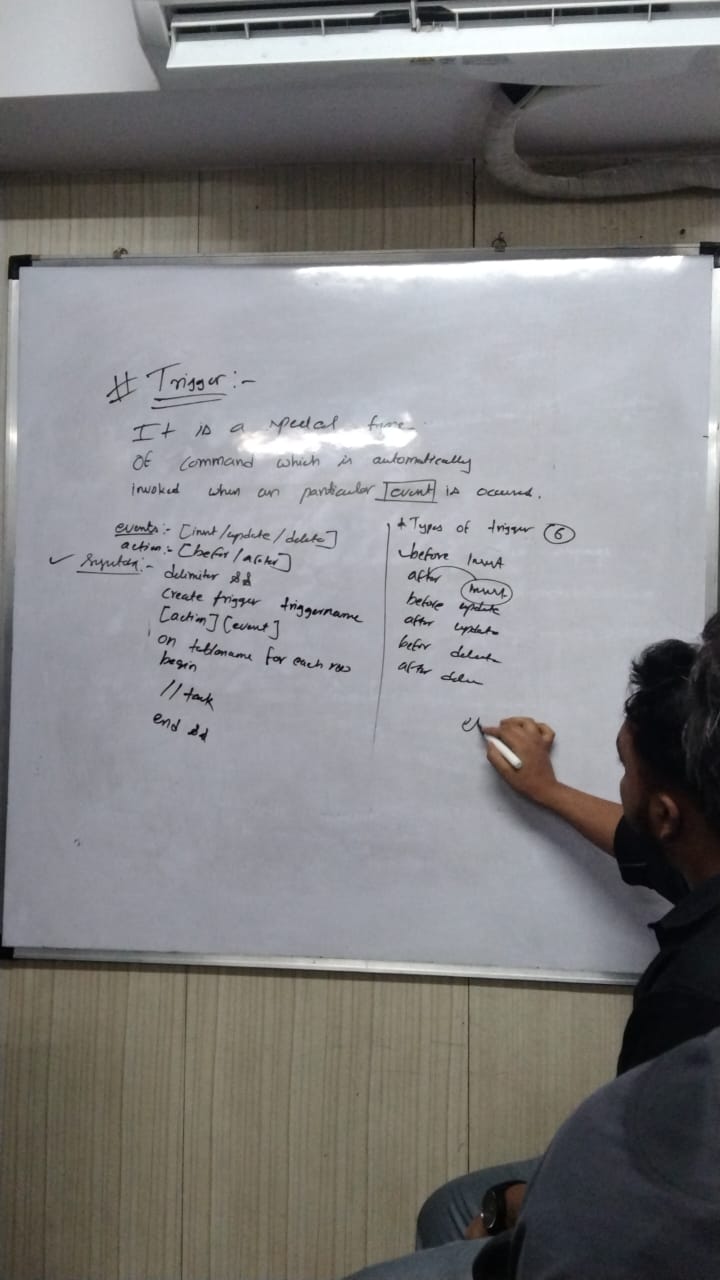 # Trigger:-
It is a special type
Of command which is automatically
invoked when an particular event is occured.
events:- [insert/update/delete]
action:- [befor/after]
✓ Syntax:-
delimiter $$
Create trigger triggername
[action] [event]
on tablename for each row
begin
//task
end $$
* Types of trigger 6
before Insert
after Insert
before update
after update
befor delete
after